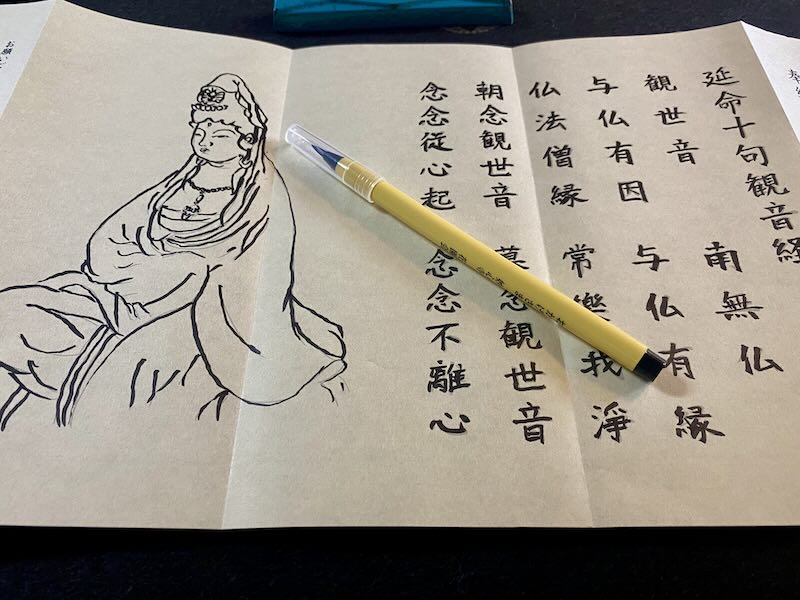 延命十句観音経
観世音 南無仏
与仏有因 与仏有縁
仏法僧縁 常樂我淨
朝念観世音 暮念観世音
念念従心起 念念不離心
お願い